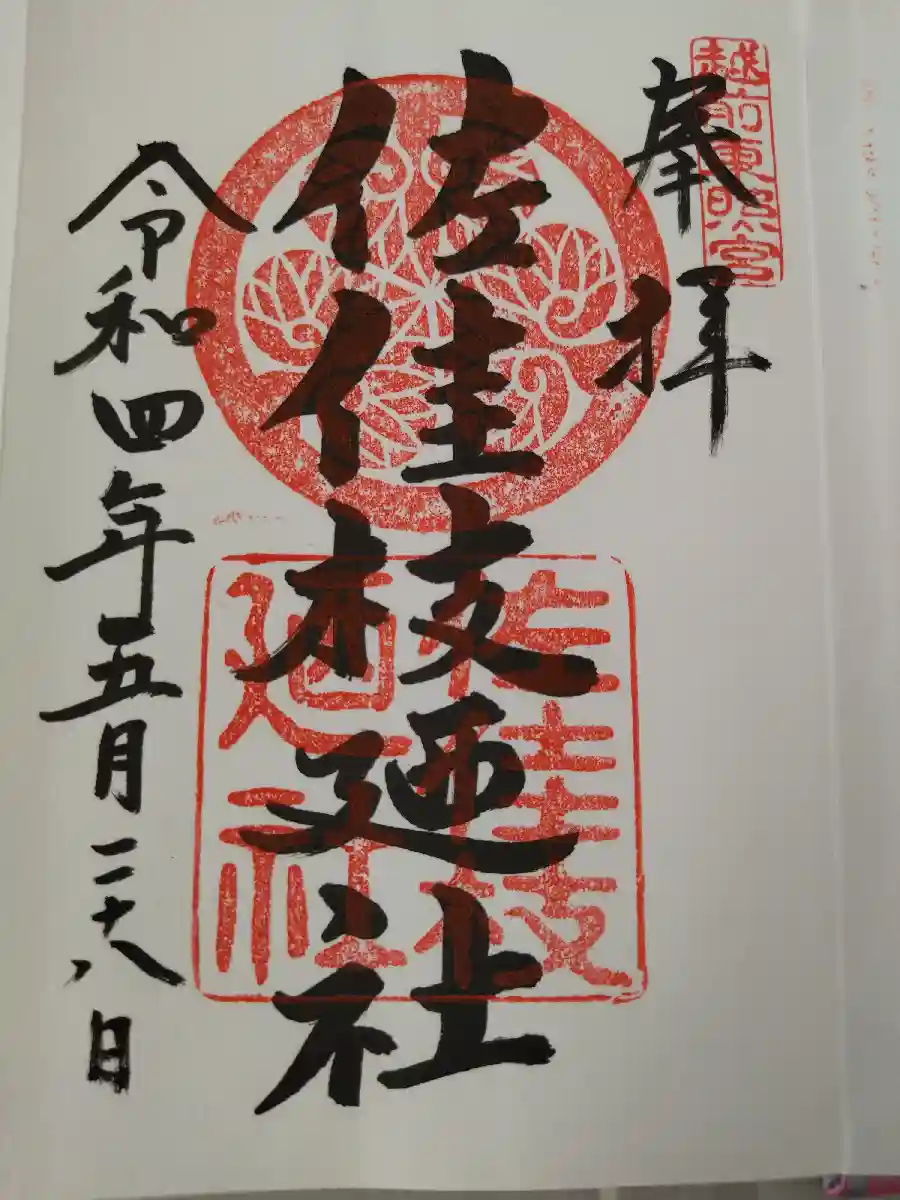 奉拝
越前東照宮
佐佳枝廼社
佐佳枝
廼社
令和四年五月二十八日